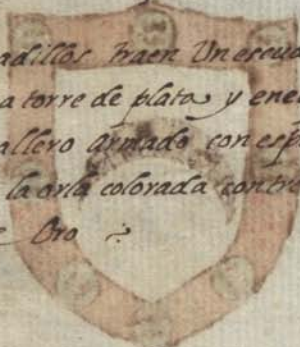 adillos traen Un escud
a torre de plata y en el
allero armado con esp
la orla colorada con tr
e Oro